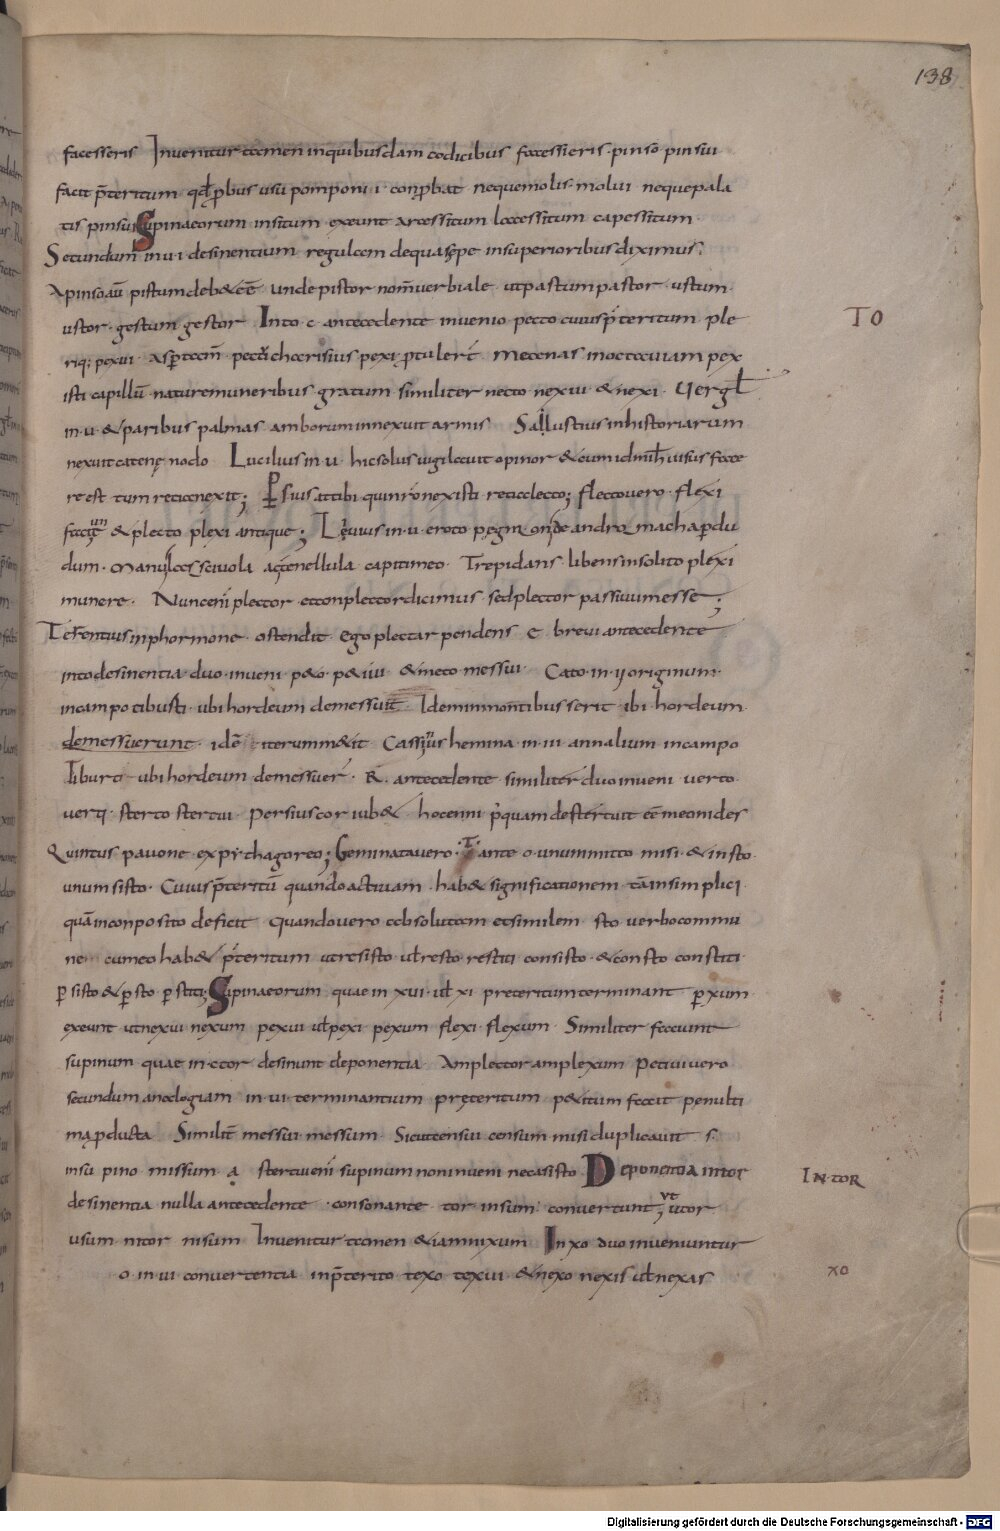 138
facesseris Inuenitur tamen inquibusdam codicibus facessieris pinso pinsui
facit p̄teritum qđ ꝓbus usu pomponii conꝓbat nequemolis molui nequepala
tis pinsui Supinaeorum insitum exeunt arcessitum laccessitum capessitum
Secundum inui desinentium regulam dequasępe insuperioribus diximus
Apinsoaū pistum deb& eē unde pistor nom̄ uerbiale utpastum pastor ustum
ustor gestum gestor Into c antecedente inuenio pecto cuius p̄teritum ple
TO
riq; pexui Asp̱ tacm̄ pecti charisius pexi ꝓtuler̄ mecenas inoctauiam pex
isti capillū naturemuneribus gratum similiter necto nexui & nexi Uergł
in u & paribus palmas amborum innexuit armis Sallustius inhistoriarum
nexuit catenę nodo Lucilius in u hic solus uigilauit opinor & cum id mih uisus facce
re est tum retia nexit; Persius at tibi quinron existi reticclecto; flecto uero flexi
facit & plecto plexi antique; Lęuius in u eroto pęgm onde andro machaꝑdu
dum Manu lasciuola ac tenellula capitimeo Trepidans libens insolito plexi
munere Nunc eni plector et conplector dicimus sed plector passiuum esse;
Terentius inphormone ostendit Ego plectar pendens E breui antecedente
into desinentia duo inueni p&o p&iui & meto messui Cato in ij originum
incampo tibusti ubi hordeum demessuit Idem inmontibus serit ibi hordeum
demessuerunt idē iterum m&it Cassius hemina in iii annalium incampo
Tiburti ubi hordeum demessuer̄ R. antecedente similiter duo inueni uerto
uerti sterto stertui Persius cor iub& hoc enni p̄quam destertuit eē meonides
Quintus pauone ex pythagoreo; Geminata uero T ante o unum mitto misi & in sto
unum sisto Cuius p̄teritū quando actiuam hab& significationem tā insimplici
quā inconposito deficit Quando uero absolutam et similem sto uerbo commu
ne cumeo hab& p̄teritum ut resisto uł resto restiti consisto & consto constiti
ꝑsisto & ꝑsto ꝑstiti; Supinaeorum quae in xui uł xi preteritum terminant ꝑ xum
exeunt ut nexui nexum pexui uł pexi pexum flexi flexum Similiter faciunt
supinum quae in ctor desinunt deponentia Amplector amplexum Petiui uero
secundum analogiam in ui terminantium pręteritum p&itum facit penulti
ma ꝓducta Similit̄ messui messum Sicut censui censum misi duplicauit s
insu pino missum a stertui eni supinum non inueni nec asisto Deponentia in tor
IN·TOR
desinentia nulla antecedente consonante tor in sum conuertunt; ut utor
usum nitor nisum Inuenitur tamen & iam nixum In xo duo inueniuntur
o in ui conuertentia inp̄terito texo texui & nexo nexis uł nexas
XO
Digitalisierung gefördert durch die Deutsche Forschungsgemeinschaft - DFG